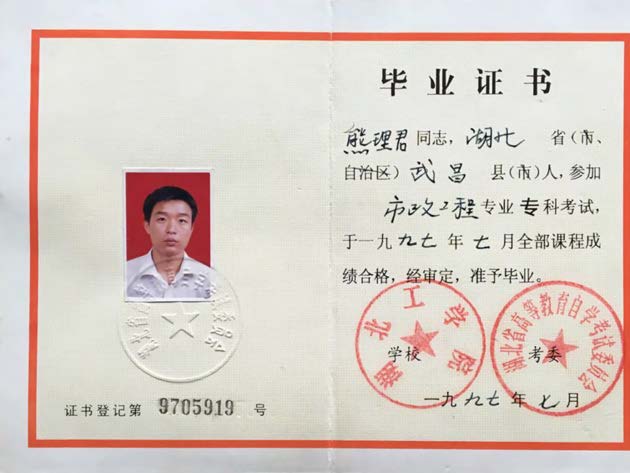 毕业证书
熊理君同志，湖北 省（市、
自治区）武昌 县（市）人，参加
市政工程专业专科考试，
于一九九七年七月全部课程成
绩合格，经审定，准予毕业。
湖北工学院
湖北省高等教育自学考试委员会
学校 考委
一九九七年七月
证书登记第 9705919 号